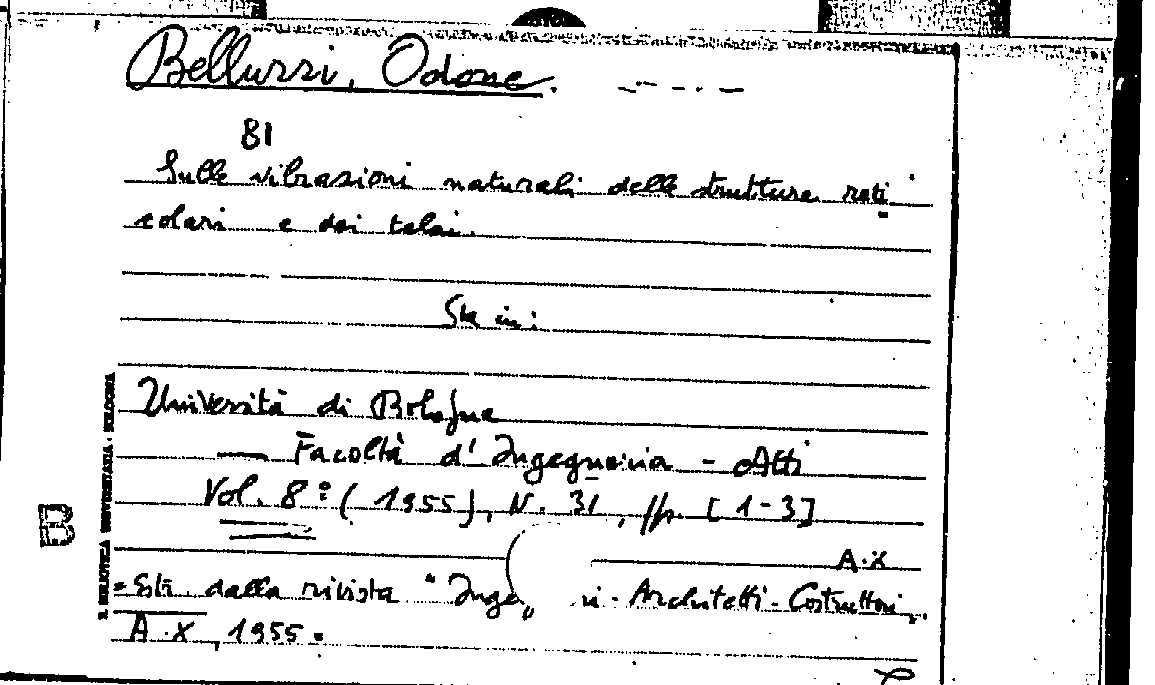 Belluzzi, Odone.
81
Sulle vibrazioni naturali delle strutture reti
colari e dei telai.
Sta in:
Università di Bologna
— Facoltà d'Ingegneria - Atti
Vol. 8º (1955), N. 31, pp. [1-3]
A.X
=Estr. dalla rivista "Inge ri-Architetti-Costruttori,,
A.X, 1955=
B
R. BIBLIOTECA UNIVERSITARIA - BOLOGNA